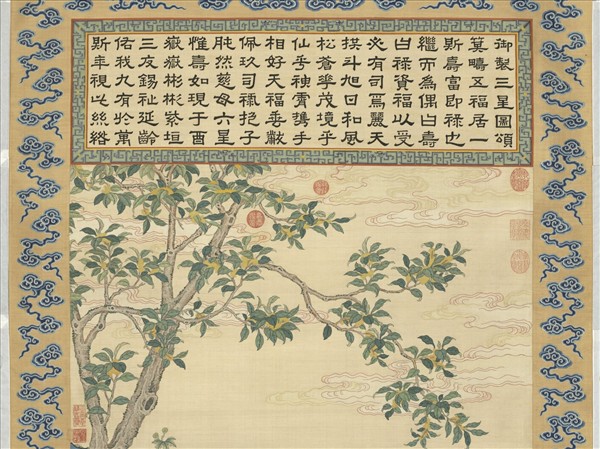 御製三星圖頌
箕疇五福居一
斯壽富即祿也
繼而為偶曰壽
曰祿資福以受
必有司焉麗天
揆斗旭日和風
松蒼華茂境乎
仙乎神霄鵠手
相好天福垂黻
佩玖司祿抱子
肫然慈母六星
惟壽如現于酉
嶽嶽彬彬紫垣
三友錫祉延齡
佑我九有於萬
斯年視此絲綹